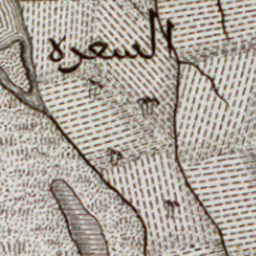 السعدة